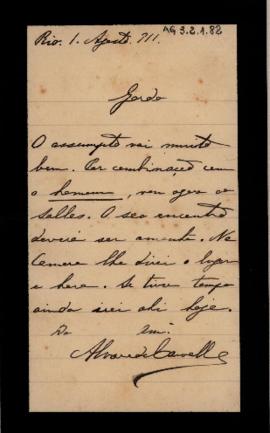 AG 3.2.1.82
Rio, 1. Agosto 911.
Gordo
O assumpto vai muito
bem. Por combinação com
o homem, vou agora ao
Salles. O seo encontro
deverá ser amanhã. Na
Camera lhe direi o lugar
e hora. Se tiver tempo
ainda irei ahi hoje.
Do
Alvaro de Carvalho